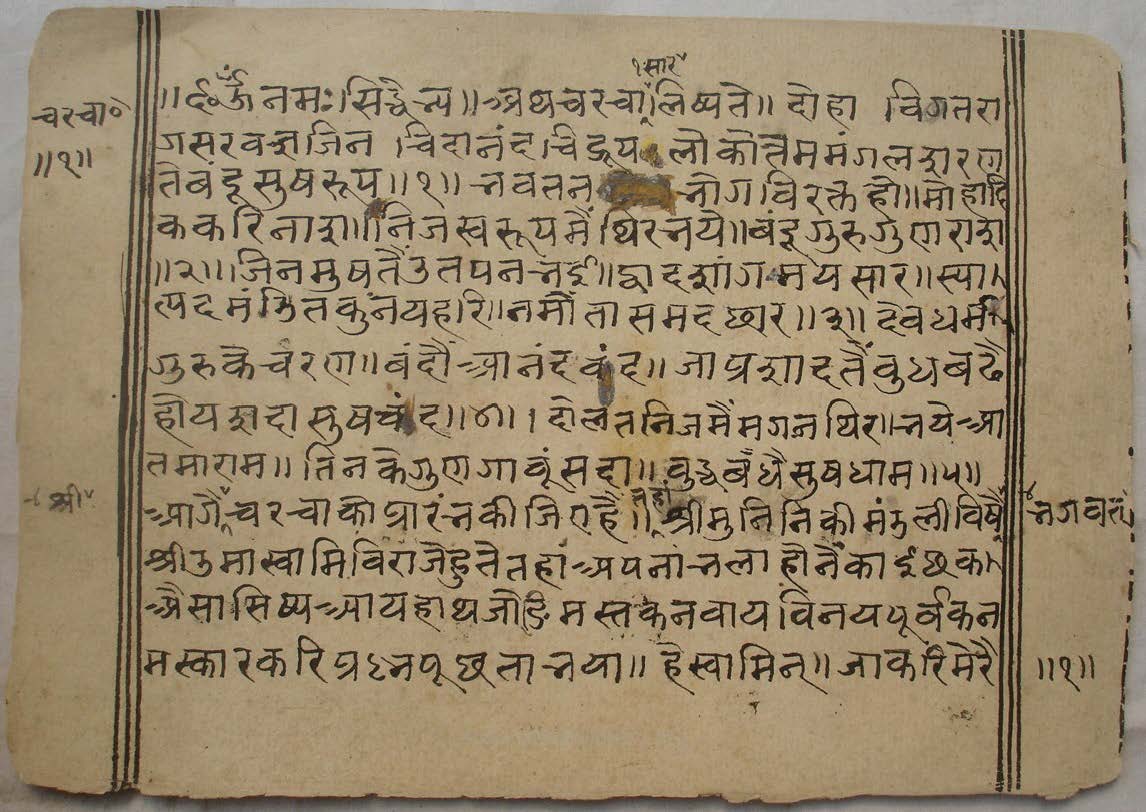 १सार
॥र्द०॥ॐ नमः सिद्धेभ्य॥ अथ चरचा लिष्यते॥ दोहा विगतरा
चरचा०
गसरवज्ञजिन चिदानंद चिद्रूप लोकोत्तममंगलशरण
॥१॥
ते बंदू सुषरूप॥१॥ भवतन भोगविरक्त है॥ मोहादि
ककरिनाश॥ निजस्वरूपमैं थिर भये॥ बंदू गुरुगुणराश
॥२॥ जिनमुषतैं उतपन भई॥ द्वादशांगमय सार॥ स्या
त्पदमंडित कुनयहरि॥ नमौं तास मद छार॥३॥ देव धर्म
गुरुके चरण॥ बंदौं आनंदकंद॥ जा प्रशादतैं बुध बढै
होय शदा सुषचंद॥४॥ दोलत निजमैं मगन थिर॥ भये आ
तमाराम॥ तिनके गुण गावूं सदा॥ वुद्ध बंधै सुषधाम॥५॥
श्री
आगैं चरचाको प्रारंभ कीजिए है॥ श्री मुनिनिकी मंडली विषैं
जहां
भगवान
श्री उमास्वामि विराजे हुते तहां अपना भला होनैंका इंछक
औसा सिष्य आय हाथ जोडि मस्तक नवाय विनयपूर्वक न
मस्कार करि प्रश्न पूछता भया॥ हे स्वामिन्॥ जाकरि मेरै
॥१॥